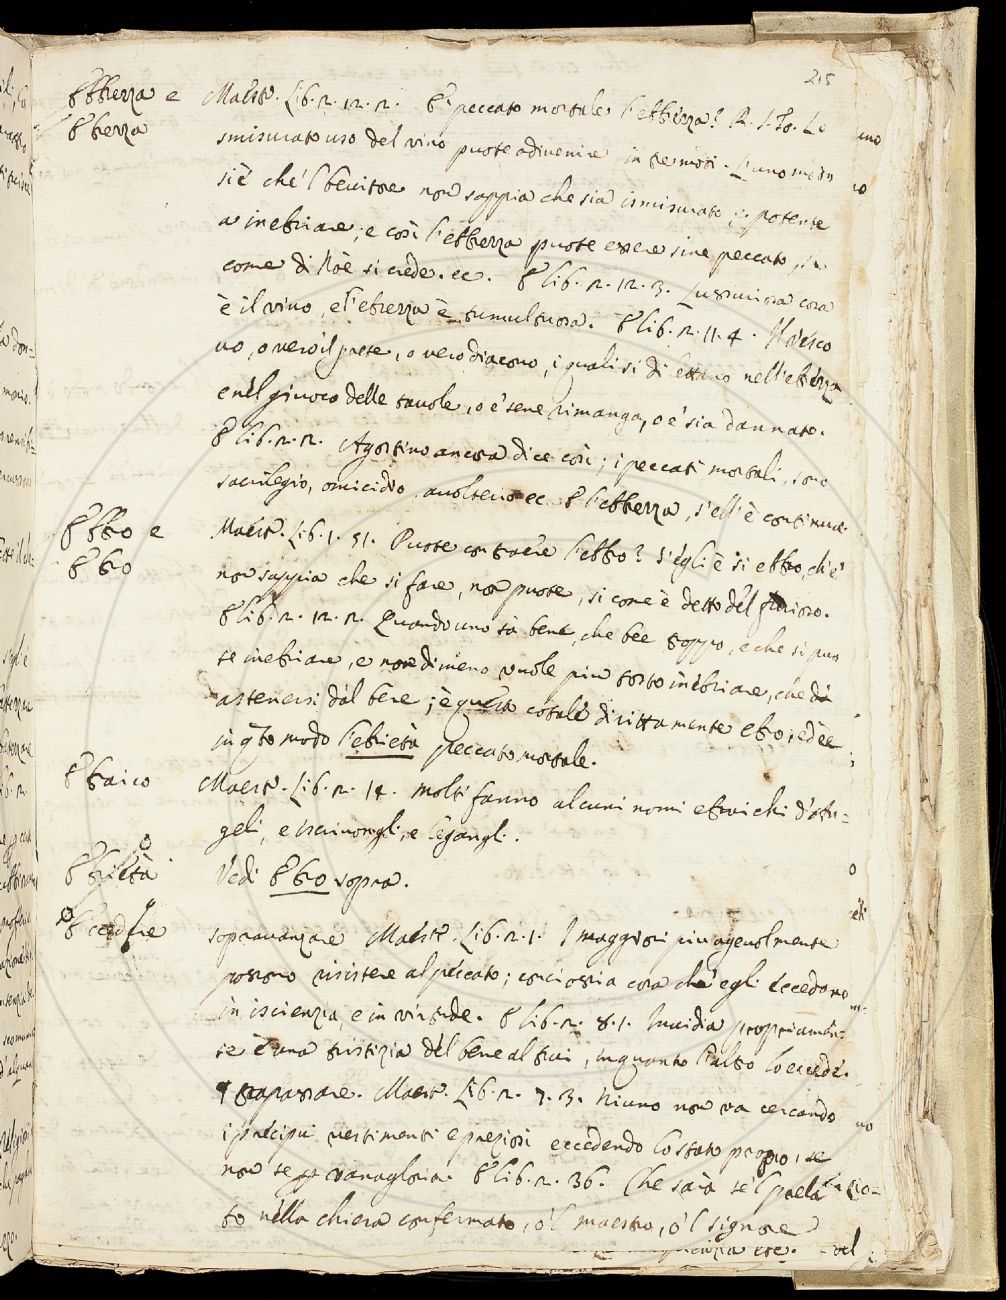 215
Ebbrezza e Maestr. Lib. 2. 12. 2. E' peccato mortale l'ebbrezza? R. S. To. Lo
Ebrezza smisurato uso del vino puote advenire in tre modi. L'uno modo
si è che 'l bevitore non sappia che sia ismisurato, e potente
a inebriare; e così l'ebbrezza puote essere sine peccato, si
come di Noè si crede. ec. E lib. 2. 12. 3. Lussuriosa cosa
è il vino, e l'ebrezza è tumultuosa. E lib. 2. 11. 4. Il Vesco
vo, o vero il prete, o vero diacono, i quali si dilettano nell'ebrezza
e nel giuoco delle tavole, o e' sene rimanga, o e' sia dannato.
E lib. 2. 2. Agostino ancora dice così; i peccati mortali, sono
sacrilegio, omicidio, avolterio ec. E l'ebbrezza, s'ell'è continua.
Ebbro e Maestr. Lib. 1. 51. Puote contraere l'ebbro? S'egli è si ebbro, ch'e'
Ebro non sappia che si fare, non puote, si come è detto del furioso.
E lib. 2. 12. 2. Quando uno sà bene, che bee troppo, e che si puo
te inebriare, e nondimeno vuole più tosto inebriare, che
astenersi dal bere; è questo cotale dirittamente ebro, ed è
in q̃sto modo l'ebrietà peccato mortale.
Ebraico Maestr. Lib. 2. 14. Molti fanno alcuni nomi ebraichi d'An-
geli, e iscrivongli, e legangli.
Ebrietà Vedi Ebro sopra.
Eccedere sopravanzare Maestr. Lib. 2. 1. I maggiori più agevolmente
possono risistere al peccato; conciossia cosa ch'egli eccedono
in iscienzia, e in virtude. E lib. 2. 8. 1. Invidia propriamen-
te è una tristizia del bene altrui, in quanto l'altro lo eccede.
¶ trapassare. Maestr. Lib. 2. 7. 3. Niuno non va cercando
i precipui vestimenti e preziosi eccedendo lo stato proprio, se
non se ꝑ vanagloria. E lib. 2. 36. Che sarà se 'l prela
to nella chiesa confermato, o 'l maestro, o 'l signore